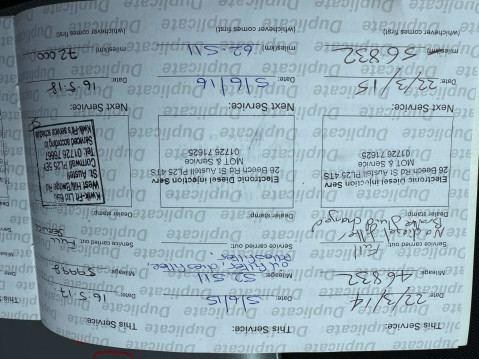 This Service:
Date: 22/3/14
Mileage: 46832
Service carried out:
Full
No diesel filter
Brake fluid changed
Dealer stamp:
Electronic Diesel Injection Serv
26 Beech Rd St Austell PL25 4TS
MOT & Service
01726 71625
Next Service:
Date: 22/3/15
(miles/km) 56832
(whichever comes first)
This Service:
Date: 5/6/15
Mileage: 52511
Service carried out:
Dealer stamp:
Electronic Diesel Injection Serv
26 Beech Rd St Austell PL25 4TS
MOT & Service
01726 71625
Next Service:
Date: 5/6/16
(miles/km) 62511
(whichever comes first)
This Service:
Date: 16.5.17
Mileage: 59998
Service carried out: Full
Service
Dealer stamp:
Kwik-Fit Ltd
West Hill/Bridge Rd
St. Austell
Cornwall PL25 5EY
Tel: 01726
Serviced according to
Kwik-Fit's service schedule
Next Service:
Date: 16.5.18
(miles/km) 72000
(whichever comes first)
Duplicate